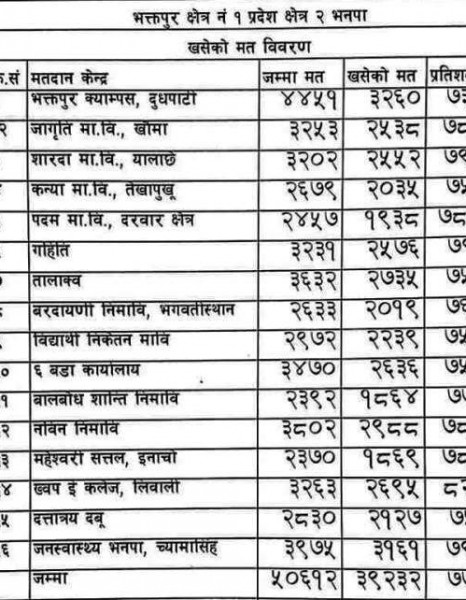 भक्तपुर क्षेत्र नं १ प्रदेश क्षेत्र २ भनपा
खसेको मत विवरण
क्र.सं मतदान केन्द्र जम्मा मत खसेको मत प्रतिशत
भक्तपुर क्याम्पस, दुधपाटी ४४५१ ३२६० ७३
२ जागृति मा.वि., खौमा ३२५३ २५३८ ७८
शारदा मा.वि., यालाछे ३२०२ २५५२ ७९
कन्या मा.वि., तेखापुखू २६७९ २०३५ ७५
पदम मा.वि., दरवार क्षेत्र २४५७ १९३८ ७८
गहिति ३२३१ २५७६ ७९
तालाक्व ३६३२ २७३५ ७५
बरदायणी निमावि, भगवतीस्थान २६३३ २०१९ ७६
विद्यार्थी निकेतन मावि २९७२ २२३९ ७५
० ६ बडा कार्यालाय ३४७० २६३६ ७५
१ बालबोध शान्ति निमावि २३९२ १८६४ ७७
२ नविन निमावि ३८०२ २९८८ ७८
३ महेश्वरी सत्तल, इनाचो २३७० १८६९ ७८
४ ख्वप ई कलेज, लिवाली ३२६३ २६९५ ८२
५ दत्तात्रय दबू २८३० २१२७ ७५
६ जनस्वास्थ्य भनपा, च्यामासिंह ३९७५ ३१६१ ७९
जम्मा ५०६१२ ३९२३२ ७७